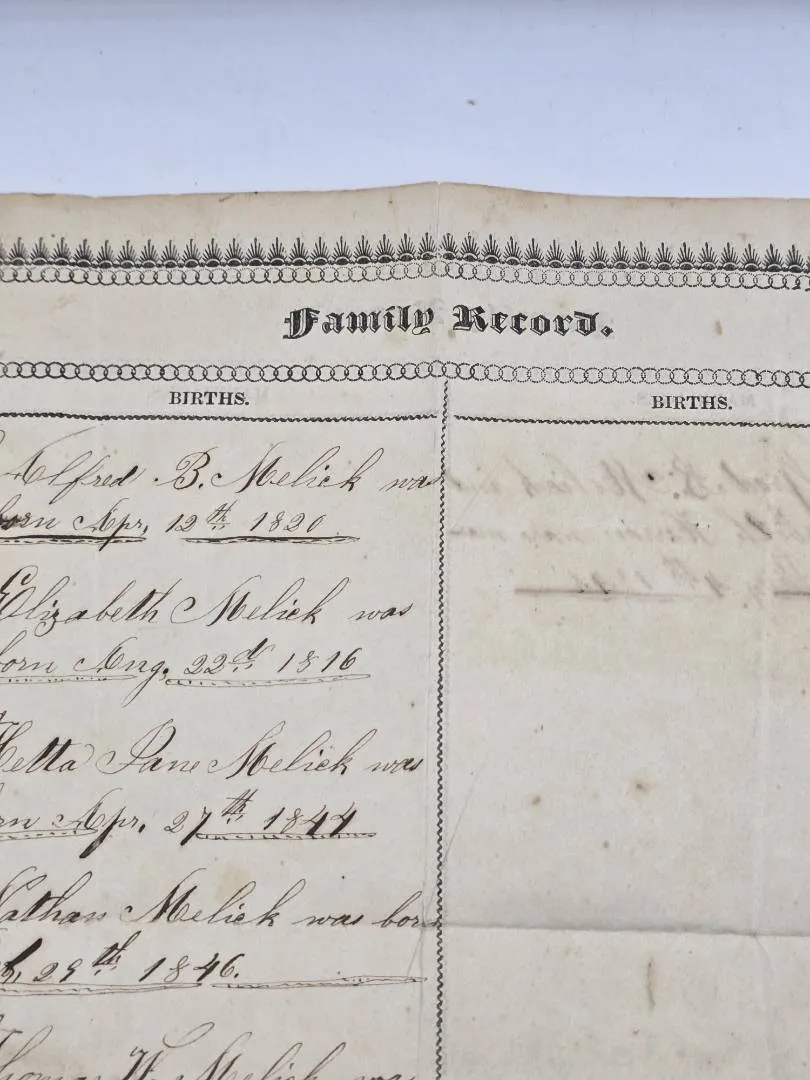 Family Record.
BIRTHS.
Alfred B. Melick was
born Apr, 12th 1820
Elizabeth Melick was
born Aug, 22d 1816
Hetta Jane Melick was
born Apr, 27th 1844
Nathan Melick was born
29th 1846.
Thomas W. Melick was
BIRTHS.